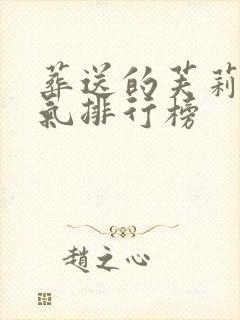 葬送的芙莉
氣排行榜
趙之心